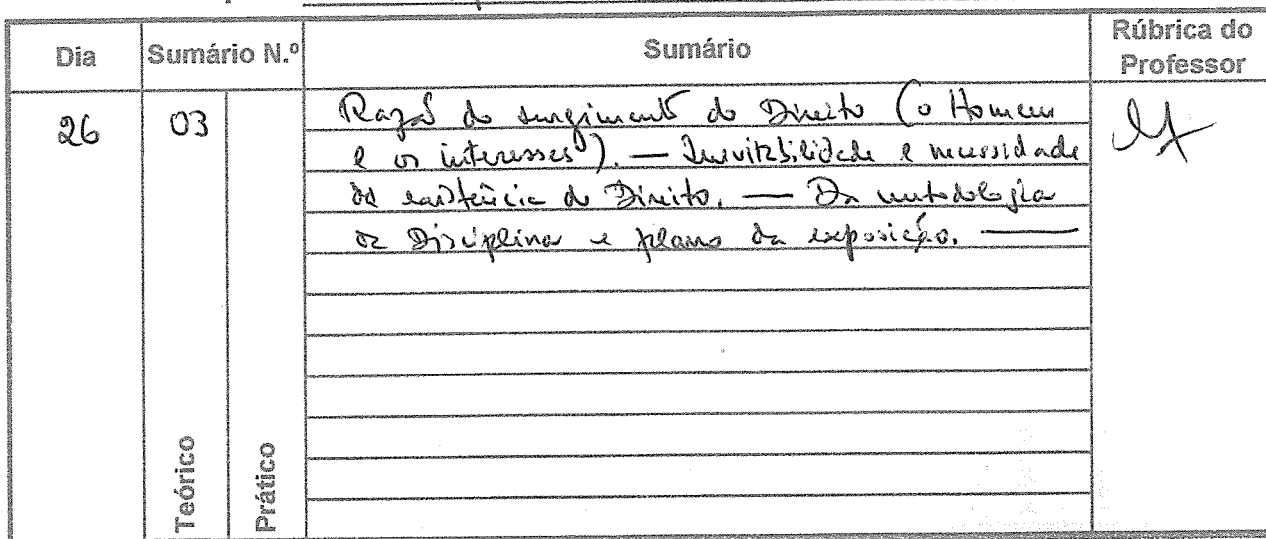 Dia
Sumário N.º
Sumário
Rúbrica do
Professor
26
03
Razão do surgimento do Direito (o Homem
e os interesses). — Inevitabilidade e necessidade
da existência do Direito. — Da metodologia
da Disciplina e plano da exposição. —
Teórico
Prático